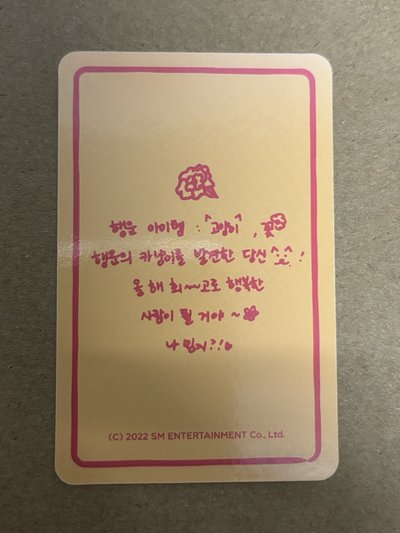 행운 아이템 : ^고양이^, 꽃
행운의 카낭이를 발견한 당신 ^^ !
올해 최~~고로 행복한
사람이 될 거야 ~
나 믿지?!♥
(C) 2022 SM ENTERTAINMENT Co., Ltd.